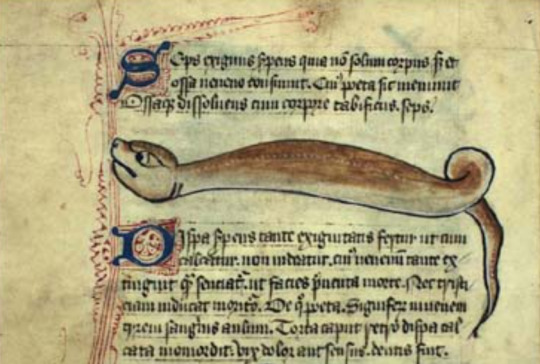 Seps exiguus serpens qui non solum corpus sed et
ossa veneno consumit. Cuius poeta sic meminit
Ossaque dissolvens cum corpore tabificus seps.
Dipsa serpens tante exiguitatis fertur ut cum
calcatur non videatur, cuius venenum tante ex
tinguit quam sentiatur, ut facies preventa morte. Nec tristi
ciam inducat morituri. De quo poeta. Signiferum iuvenem
tirreni sanguinis aulum. Torta caput retro dipsa cal
cata momordit. vix dolor aut sensus dentis fuit.